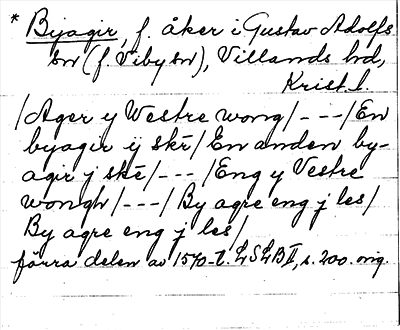 * Byagir, f. åker i Gustav Adolfs
sn (f. Viby sn), Villands hd,
Krist. l.
/Ager y Westre wong/---/En
byagir ij skē/En anden by-
agir j skē/---/Eng y Vestre
wongh/---/By agre eng j les/
By agre eng j les/
förra delen av 1570-t. LSLB II, s. 200. orig.